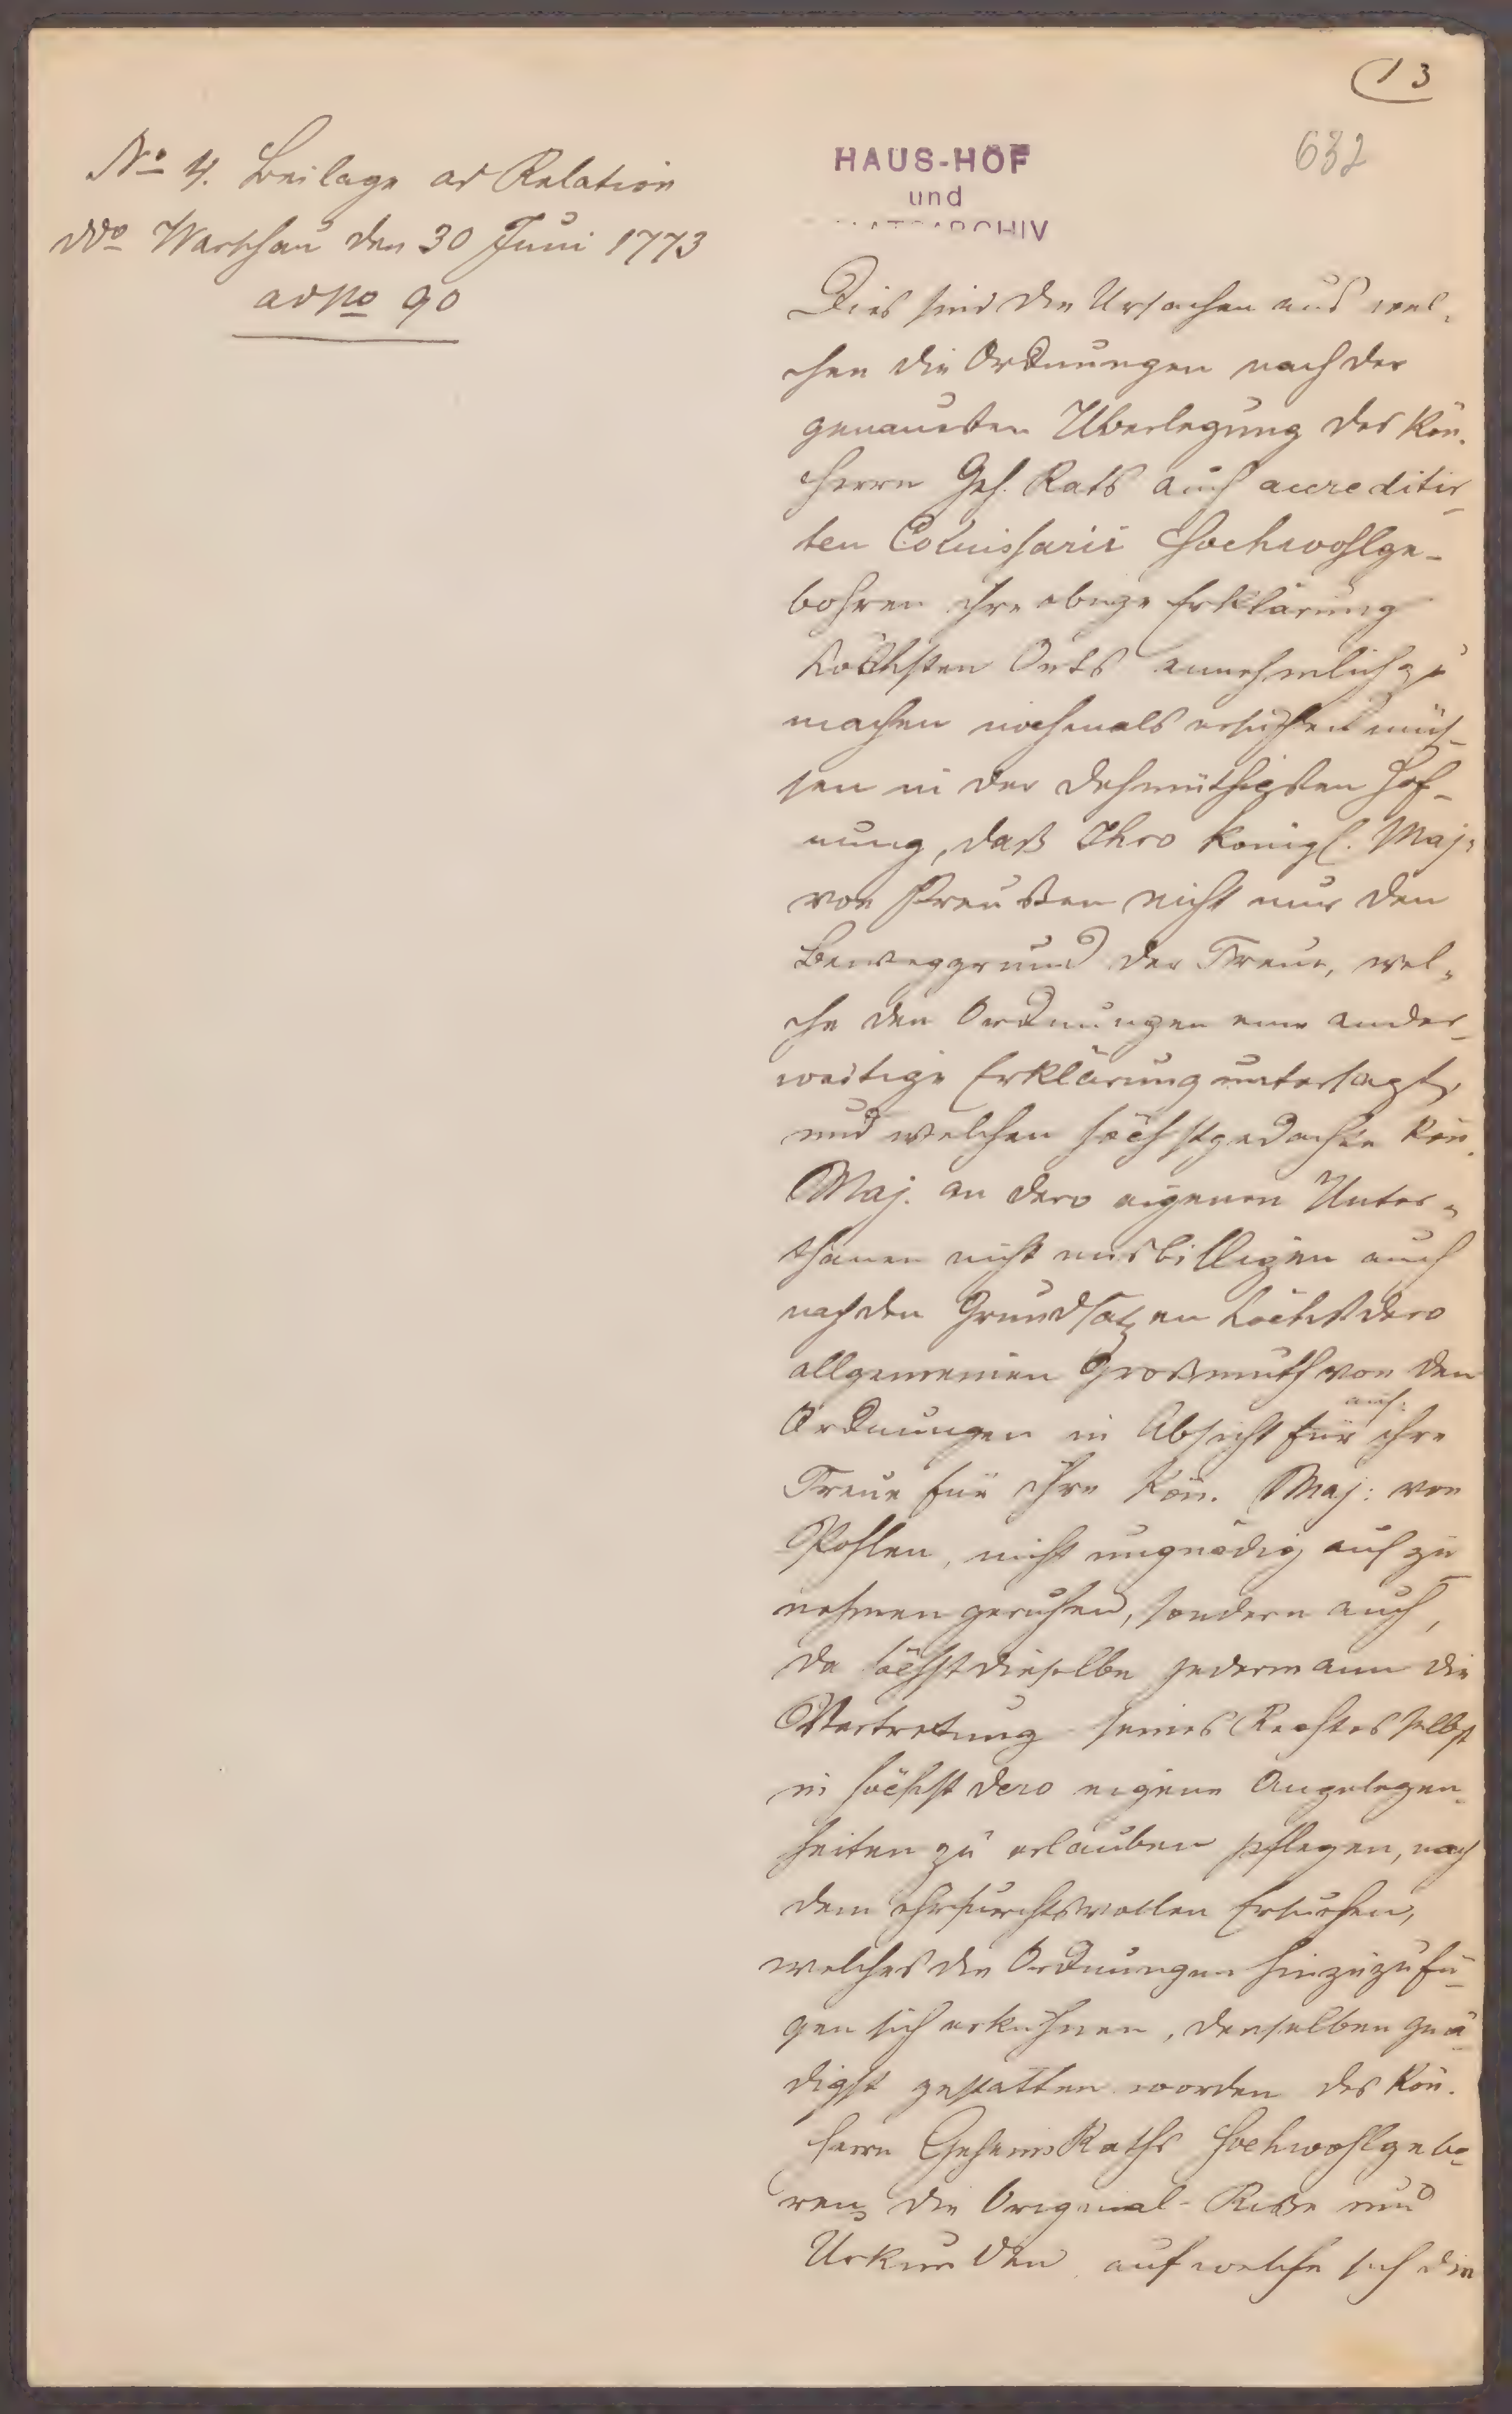 13
632
No 4. Beilage ad Relation
ddo Warschau den 30 Juni 1773
ad No 90
HAUS-HOF
und
STAATSARCHIV
Dies sind die Ursachen aus wel-
chen die Ordnungen nach der
genauesten Überlegung des Kön.
Herrn Geh. Rats auch accreditir-
ten Comissarii Hochwohlge-
bohren ihre obige Erklärung
höchsten Orts annehmlich zu
machen nochmals ersuchen müs-
sen in der dehmüthigsten Hof-
nung, daß Ihro Königl. Maj:
von Preußen nicht nur den
Beweggrund der Treue, wel-
che den Ordnungen eine ander-
weitige Erklärung untersagt,
und welchen höchstgedachte Kön.
Maj. an dero eigenen Unter-
thanen nicht misbilligen auch
nach den Grundsätzen höchst dero
allgemeinen Großmuth von den
Ordnungen in Absicht für auf: ihre
Treue für ihre Kön. Maj: von
Pohlen, nicht ungnädig auf zu
nehmen geruhen, sondern auch,
da höchst dieselbe jedermann die
Vertretung seines Rechtes selbst
in höchst dero eigene Angelegen-
heiten zu erlauben pflegen, nach
dem ehrfurchtsvollen Ersuchen,
welches die Ordnungen hinzuzufü-
gen sich erkühnen, denselben gnä-
digst gestatten worden des Kön.
Herrn Geheim Raths Hochwohlgebo-
ren die Original-Risse und
Urkunden auf welche sich die